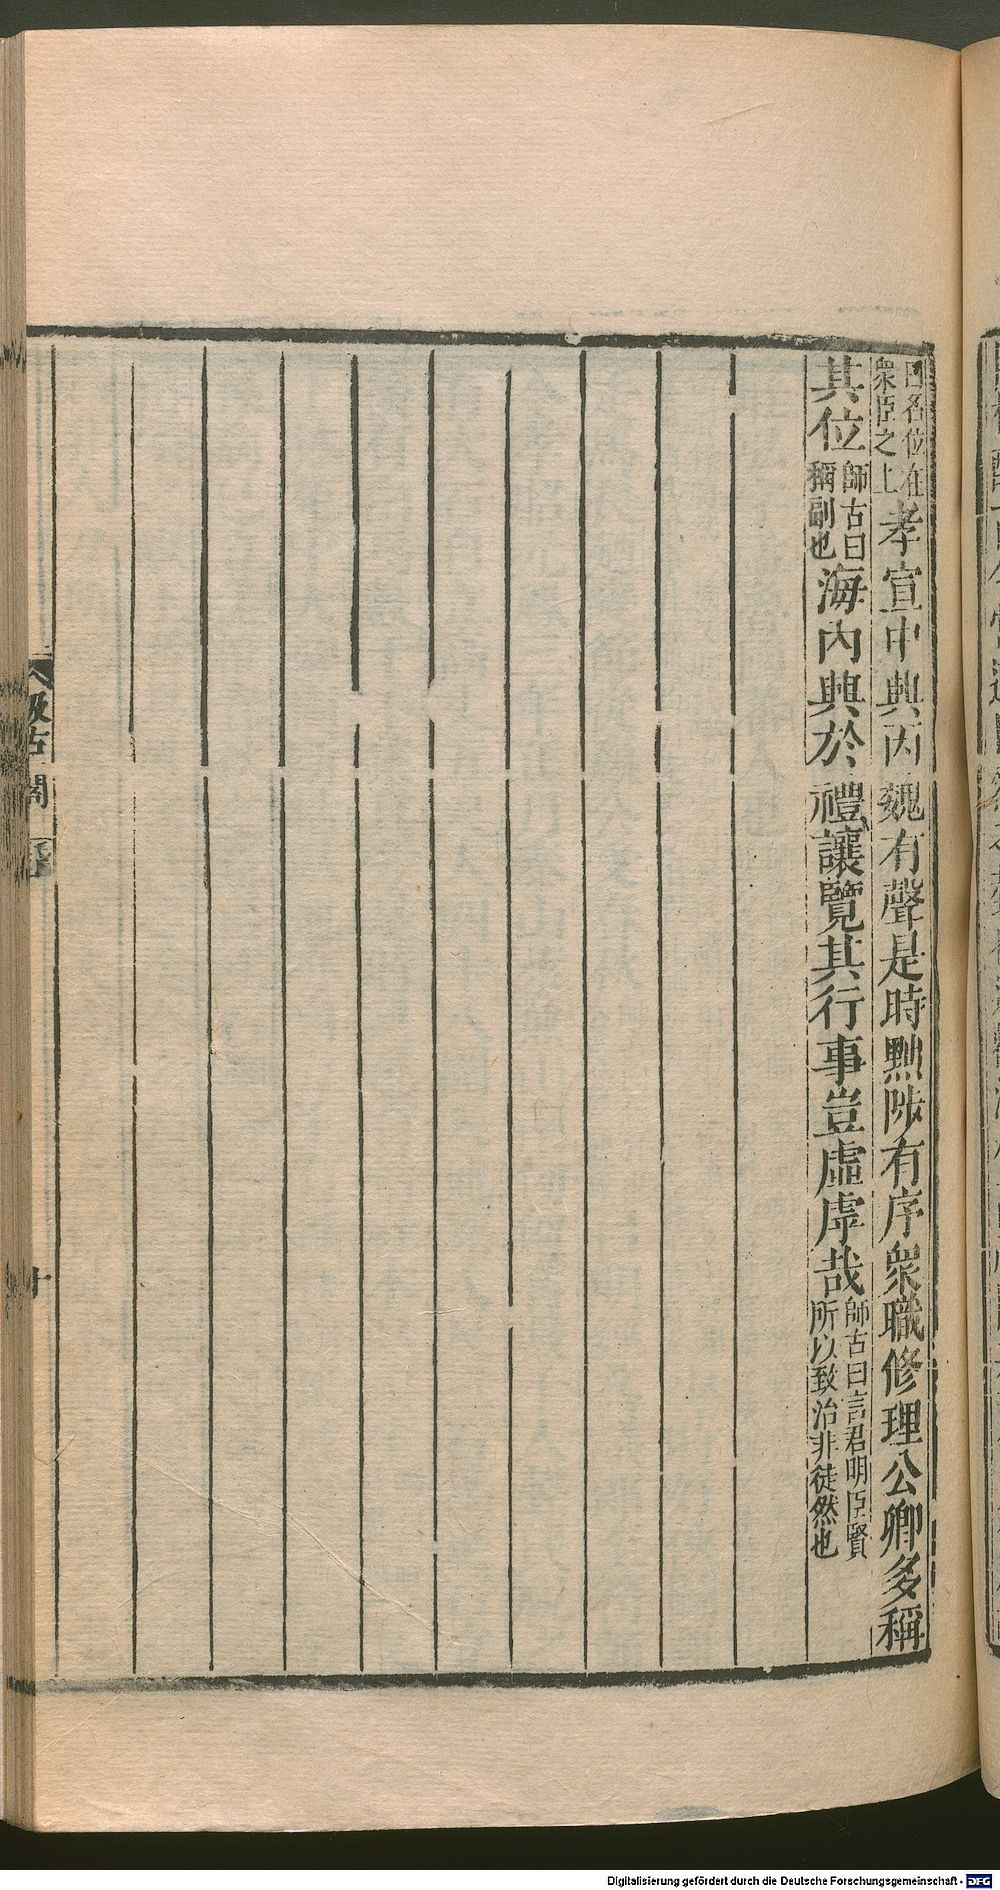 曰名位在衆臣之上孝宣中興丙魏有聲是時黜陟有序衆職修理公卿多稱
其位師古曰稱副也海内興於禮讓覽其行事豈虛虖哉師古曰言君明臣賢所以致治非徒然也
汲古閣
十
Digitalisierung gefördert durch die Deutsche Forschungsgemeinschaft - DFG